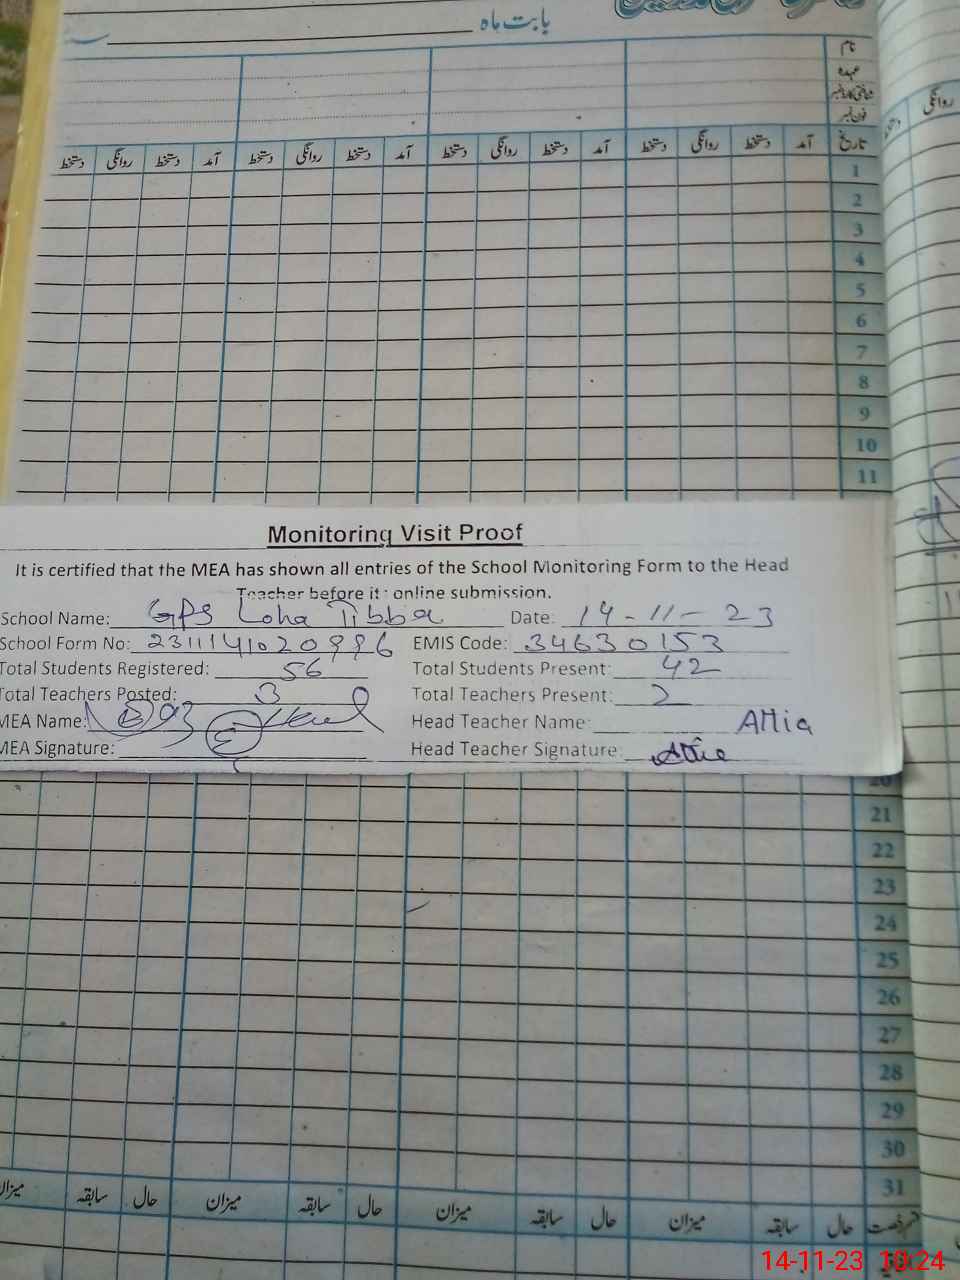 بابت ماہ
نام
عہدہ
شناختی کارڈ نمبر
فون نمبر
تاریخ آمد دستخط روانگی دستخط آمد دستخط روانگی دستخط آمد دستخط روانگی دستخط آمد دستخط روانگی دستخط
روانگی
1
2
3
4
5
6
7
8
9
10
11
Monitoring Visit Proof
It is certified that the MEA has shown all entries of the School Monitoring Form to the Head
Teacher before it : online submission.
School Name: GPS Loha Tibba Date: 14-11-23
School Form No: EMIS Code: 34630153
Total Students Registered: 56 Total Students Present: 42
Total Teachers Posted: 3 Total Teachers Present: 2
MEA Name: Head Teacher Name: Attia
MEA Signature: Head Teacher Signature: Attia
20
21
22
23
24
25
26
27
28
29
30
31
قسم رخصت حال سابقہ میزان حال سابقہ میزان حال سابقہ میزان حال سابقہ میزان
14-11-23 10:24